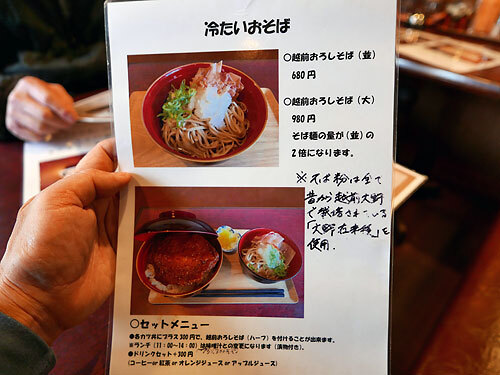 冷たいおそば
○越前おろしそば（並）
680円
○越前おろしそば（大）
980円
そば麺の量が（並）の
2倍になります。
※そば粉は全て
昔から越前大野
で栽培されている
「大野在来種」を
使用.
○セットメニュー
●各カツ丼にプラス300円で、越前おろしそば（ハーフ）を付けることが出来ます。
※ランチ（11：00～14：00）は味噌汁との変更になります（漬物付き）。
●ドリンクセット+300円
（コーヒーor 紅茶 or オレンジジュース or アップルジュース）